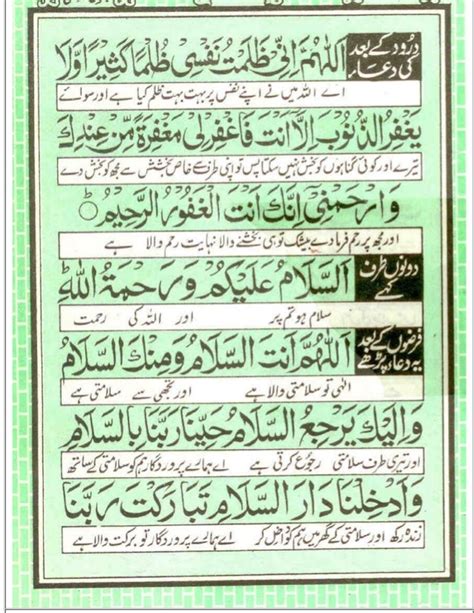 درود کے بعد کی دعاء
اَللّٰهُمَّ اِنِّیْ ظَلَمْتُ نَفْسِیْ ظُلْمًا كَثِیْرًا وَّلَا
اے اللہ میں نے اپنے نفس پر بہت بہت ظلم کیا ہے اور سوائے
یَغْفِرُ الذُّنُوْبَ اِلَّا اَنْتَ فَاغْفِرْلِیْ مَغْفِرَةً مِّنْ عِنْدِكَ
تیرے اور کوئی گناہوں کو بخش نہیں سکتا پس تو اپنی طرف سے خاص بخشش سے مجھ کو بخش دے
وَارْحَمْنِیْ اِنَّكَ اَنْتَ الْغَفُوْرُ الرَّحِیْمُ
اور مجھ پر رحم فرما دے بیشک تو ہی بخشنے والا نہایت رحم والا ہے
دونوں طرف کہے
اَلسَّلَامُ عَلَیْكُمْ وَرَحْمَةُ اللهِ
سلام ہو تم پر اور اللہ کی رحمت
فرضوں کے بعد یہ دعا پڑھے
اَللّٰهُمَّ اَنْتَ السَّلَامُ وَمِنْكَ السَّلَامُ
الٰہی تو سلامتی والا ہے اور تجھی سے سلامتی ہے
وَاِلَیْكَ یَرْجِعُ السَّلَامُ حَیِّنَا رَبَّنَا بِالسَّلَامِ
اور تیری طرف سلامتی رجوع کرتی ہے اے ہمارے پروردگار ہم کو سلامتی کے ساتھ
وَاَدْخِلْنَا دَارَ السَّلَامِ تَبَارَكْتَ رَبَّنَا
زندہ رکھ اور سلامتی کے گھر میں ہم کو داخل کر اے ہمارے پروردگار تو برکت والا ہے